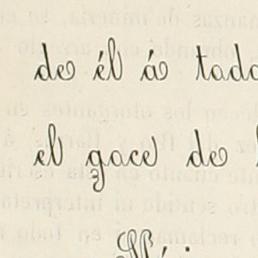 de él á todo
el goce de